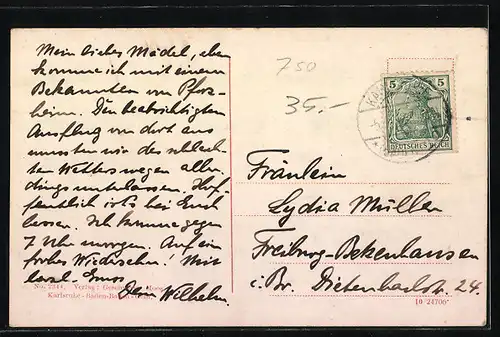 Mein liebes Mädel, eben
komme ich mit einem
Bekannten von Pforz-
heim. Den beabsichtigten
Ausflug von dort aus
mussten wir des schlech-
ten Wetters wegen aller-
dings unterlassen. Hof-
fentlich ist's bei Euch
besser. Ich komme gegen
7 Uhr morgen. Auf ein
frohes Wiedersehen! Mit
herzl. Gruss
Dein Wilhelm.
No. 2344, Verlag:
Karlsruke - Baden-Ba
750
35.-
5 5
DEUTSCHES REICH
Fräulein
Lydia Müller
Freiburg-Bekenhausen
i. Br. Dietenbachstr. 24.
10 24706